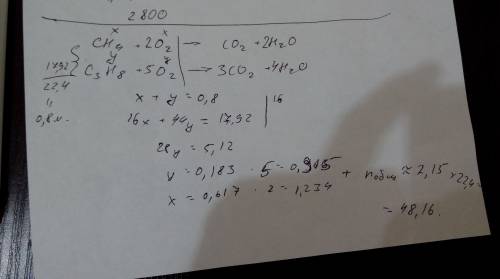 2800
x x
CH4 + 2O2 → CO2 + 2H2O
y y
C3H8 + 5O2 → 3CO2 + 4H2O
17,92
22,4
"
0,8 м.
x + y = 0,8 | 16
16x + 44y = 17,92
28y = 5,12
y = 0,183 · 5 = 0,915
x = 0,617 · 2 = 1,234
+ nобщ ≈ 2,15 × 22,4 =
= 48,16.